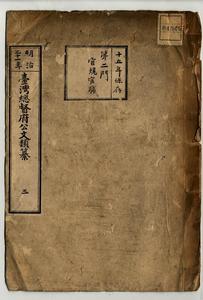 十五年保存
第二門
官規官職
明治
三十一年
臺灣總督府公文類纂
二